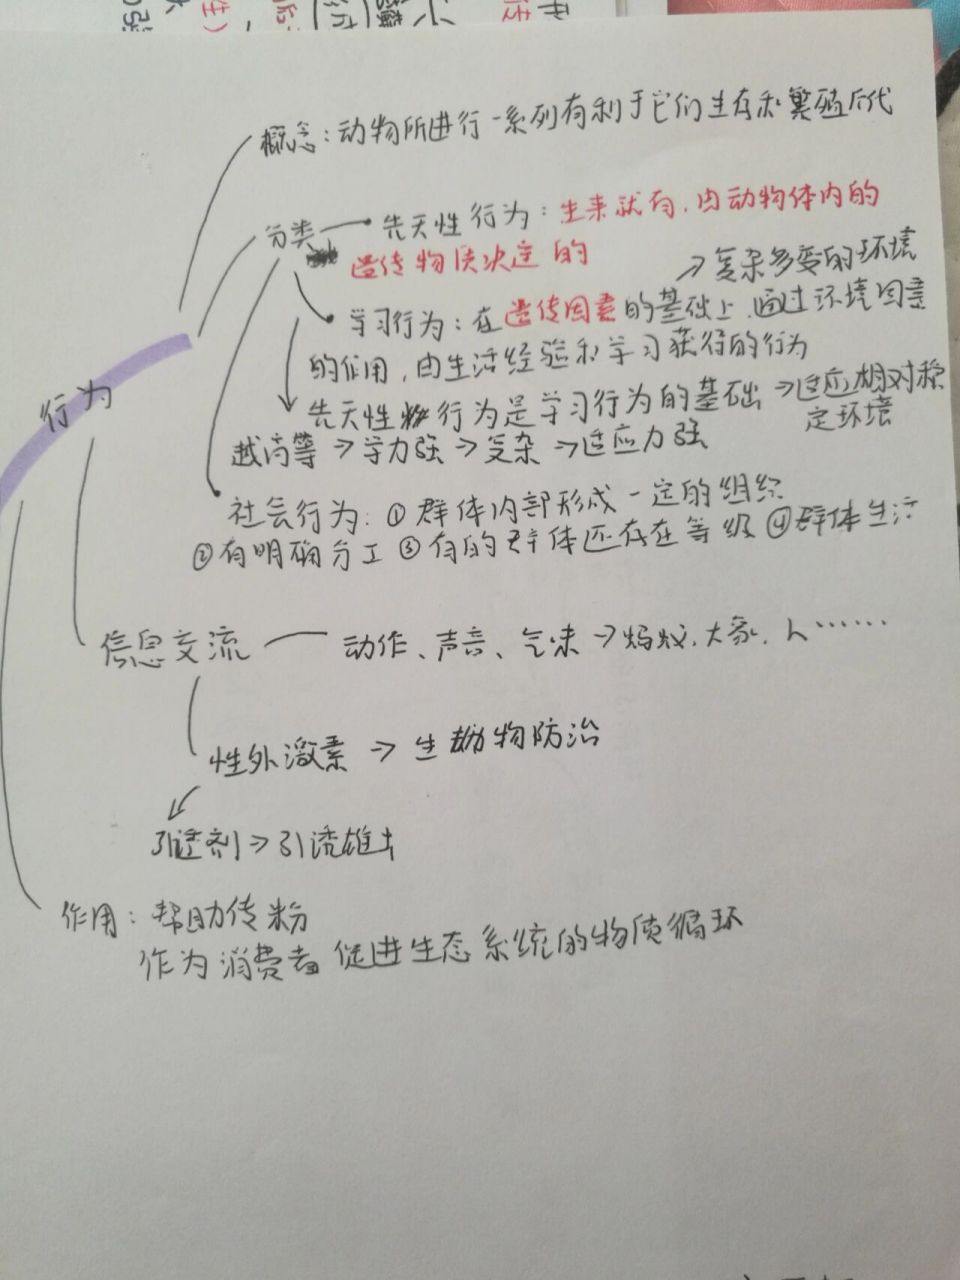 概念：动物所进行一系列有利于它们生存和繁殖后代
分类
先天性行为：生来就有，由动物体内的
遗传物质决定的
→复杂多变的环境
学习行为：在遗传因素的基础上，通过环境因素
的作用，由生活经验和学习获得的行为
行为
先天性行为是学习行为的基础→适应相对稳
定环境
越高等→学力强→复杂→适应力强
社会行为：①群体内部形成一定的组织
②有明确分工③有的群体还存在等级④群体生活
信息交流
动作、声音、气味→蚂蚁、大象、人……
性外激素→生物防治
引诱剂→引诱雄虫
作用：帮助传粉
作为消费者促进生态系统的物质循环